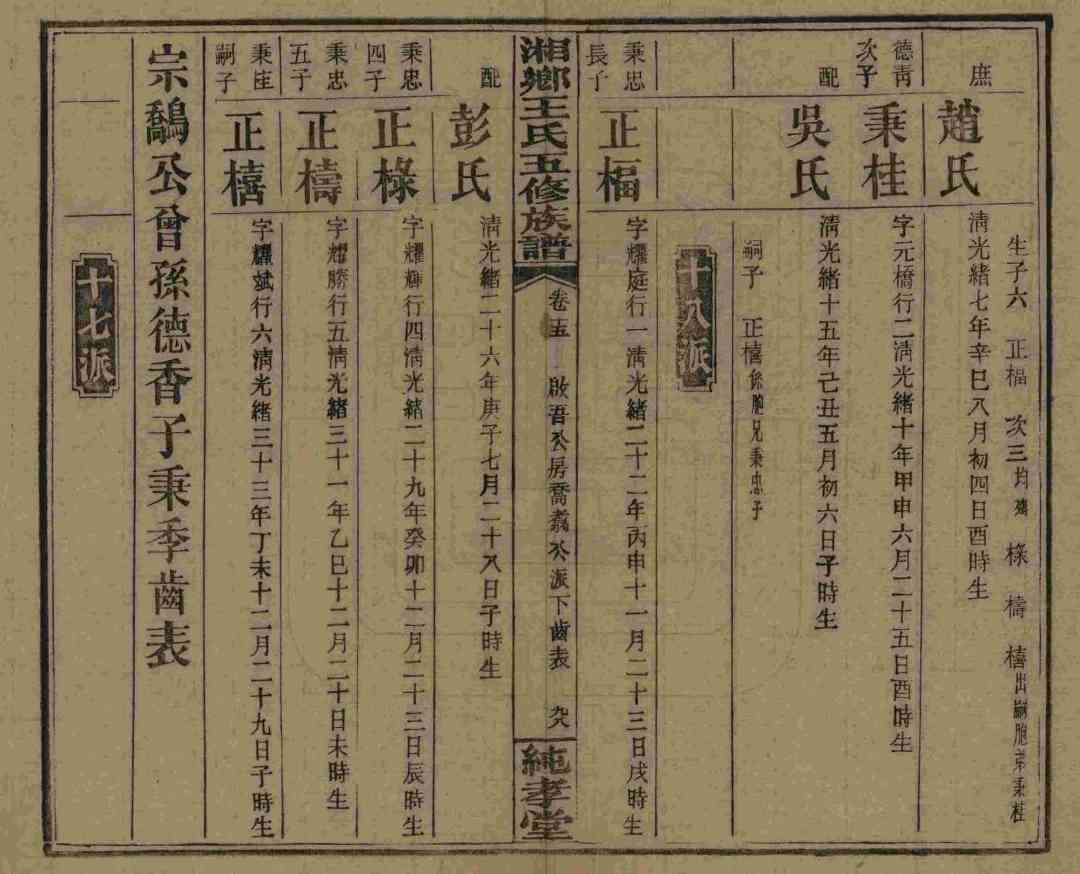 生子六 正楅 次三均殤 椂 檮 橲出嗣胞弟秉桂
庶 趙氏 淸光緒七年辛巳八月初四日酉時生
德靑次子 秉桂 字元橋行二淸光緒十年甲申六月二十五日酉時生
配 吳氏 淸光緒十五年己丑五月初六日子時生
嗣子 正橲係胞兄秉忠子
十八派
秉忠長子 正楅 字耀庭行一淸光緒二十二年丙申十一月二十三日戌時生
湘鄉王氏五修族譜 卷五 啟吾公房喬公派下齒表 純孝堂
配 彭氏 淸光緒二十六年庚子七月二十八日子時生
秉忠四子 正椂 字耀輝行四淸光緒二十九年癸卯十二月二十三日辰時生
秉忠五子 正檮 字耀勝行五淸光緒三十一年乙巳十二月二十日未時生
秉桂嗣子 正橲 字耀斌行六淸光緒三十三年丁未十二月二十九日子時生
宗鷸公曾孫德香子秉季齒表
十七派